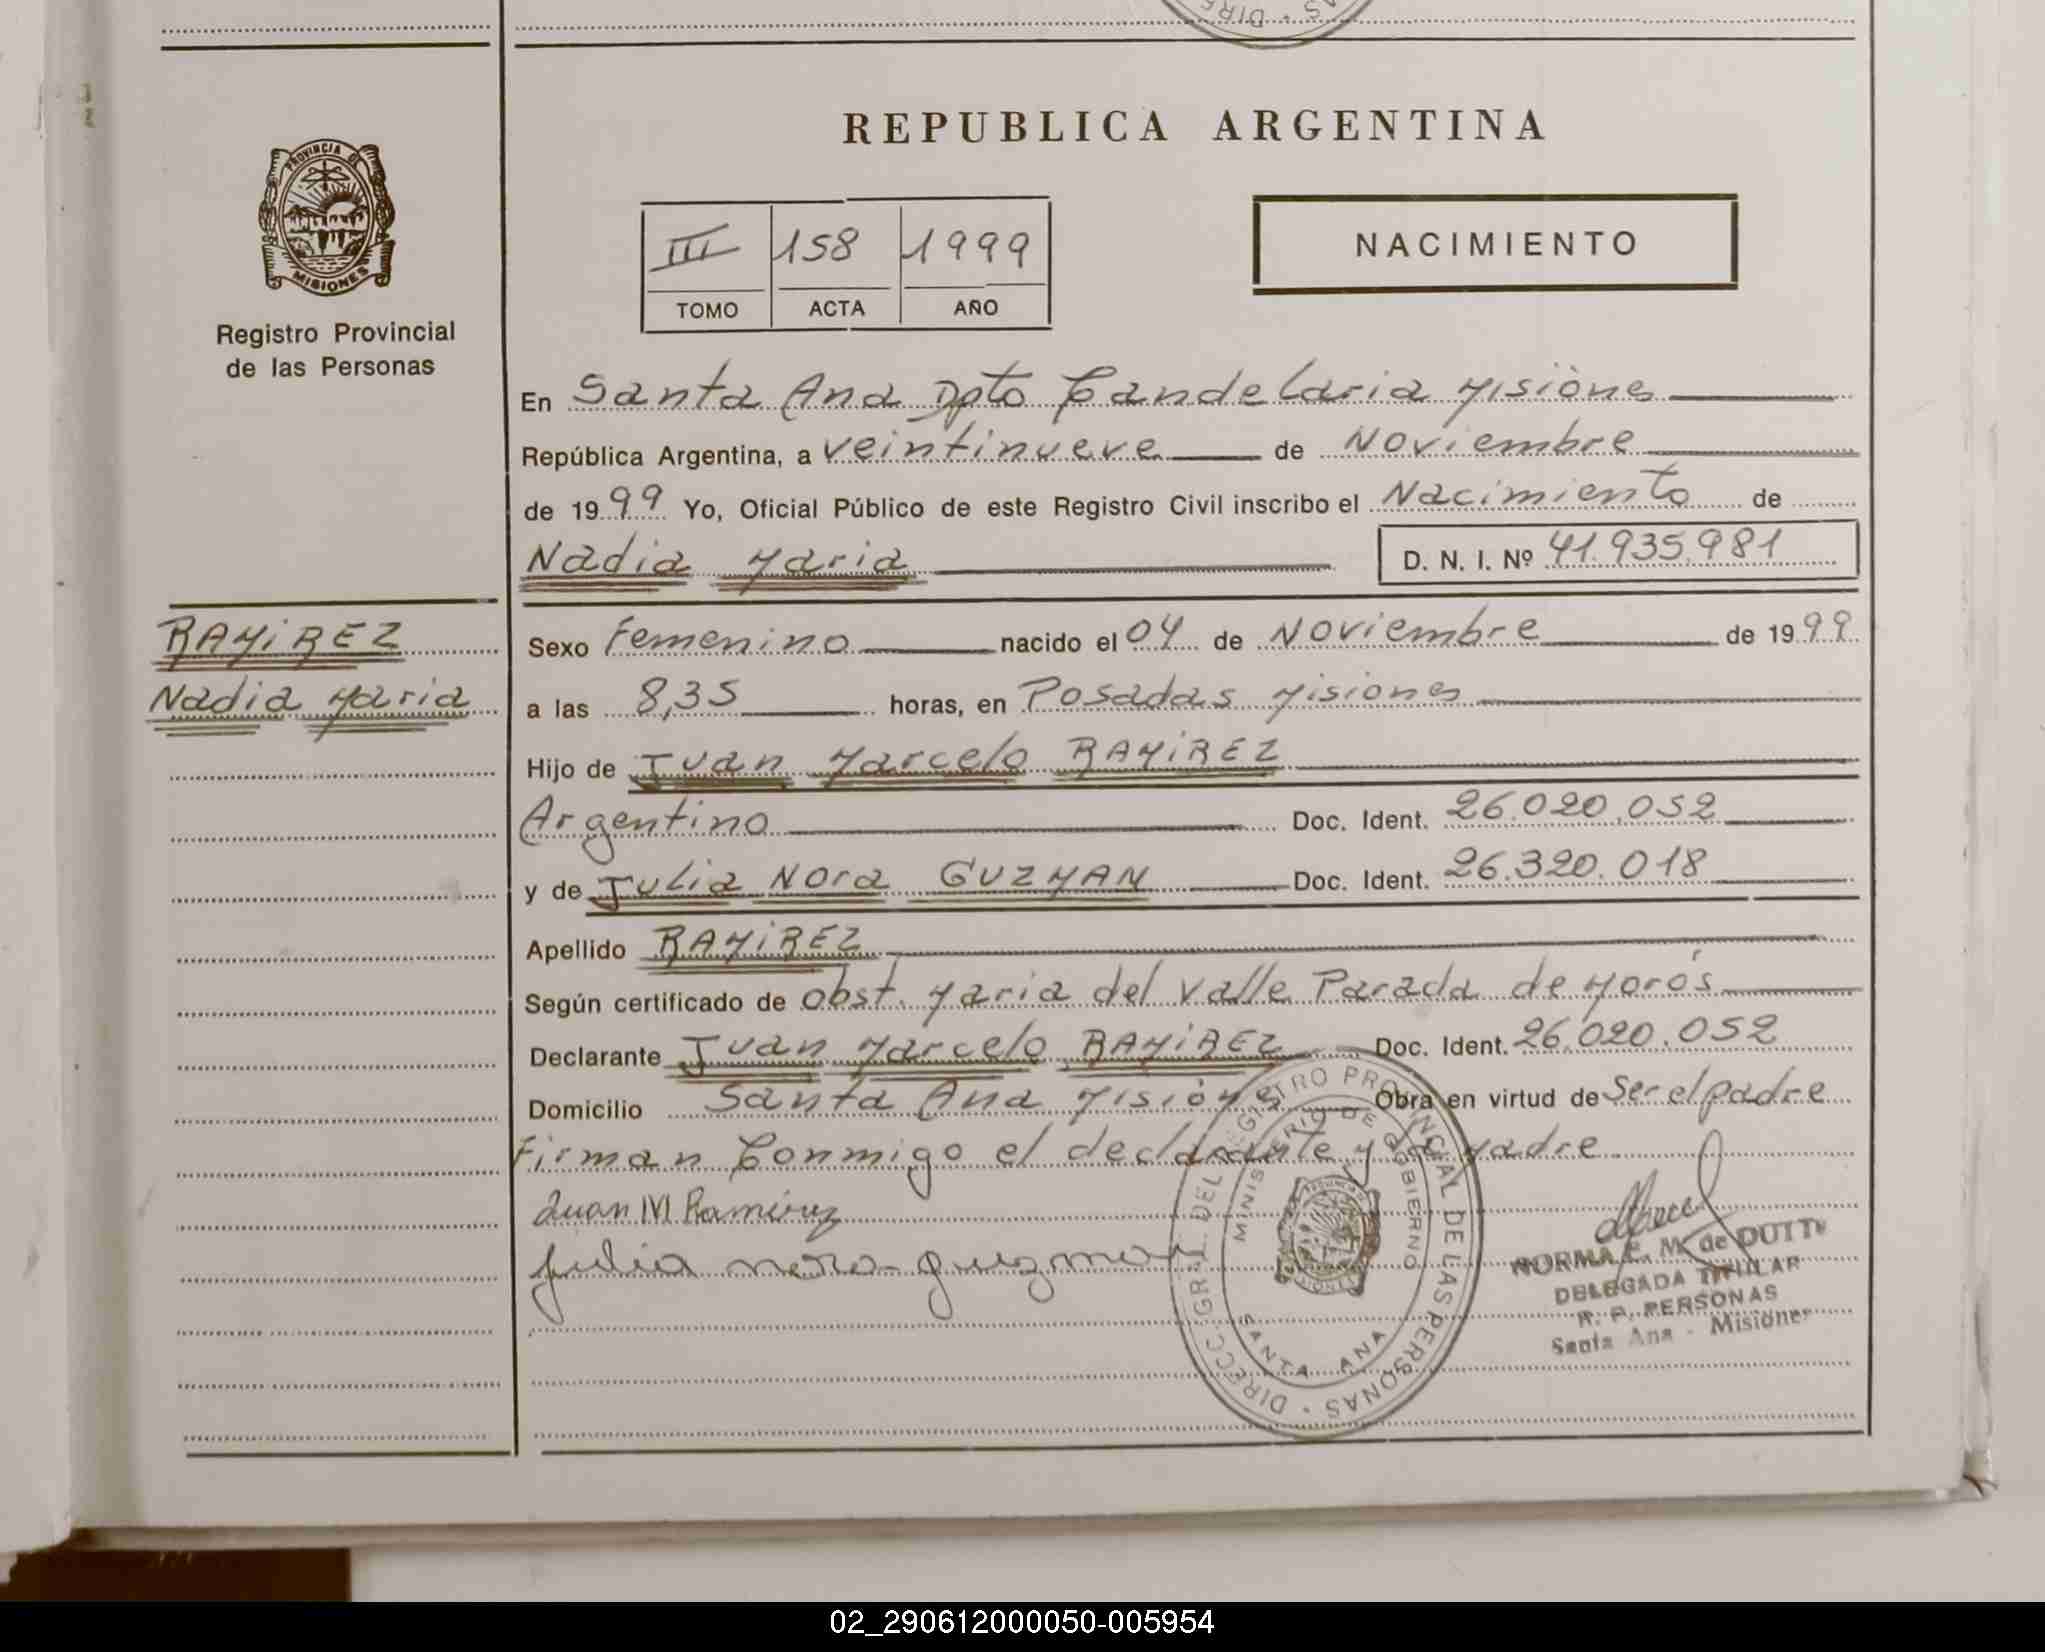 REPUBLICA ARGENTINA
PROVINCIA DE
MISIONES
Registro Provincial
de las Personas
III 158 1999
TOMO ACTA AÑO
NACIMIENTO
En Santa Ana Dpto Candelaria Misiones
República Argentina, a veintinueve de Noviembre
de 1999 Yo, Oficial Público de este Registro Civil inscribo el Nacimiento de
Nadia Maria D. N. I. Nº 41.935.981
RAMIREZ
Nadia Maria
Sexo Femenino nacido el 04 de Noviembre de 1999
a las 8,35 horas, en Posadas Misiones
Hijo de Juan Marcelo RAMIREZ
Argentino Doc. Ident. 26.020.052
y de Julia Nora GUZMAN Doc. Ident. 26.320.018
Apellido RAMIREZ
Según certificado de obst. Maria del Valle Parada de Morós
Declarante Juan Marcelo RAMIREZ Doc. Ident. 26.020.052
Domicilio Santa Ana Misiones Obra en virtud de Ser el padre
Firman Conmigo el declarante y la Madre
Juan M Ramirez
julia nora guzman
DIRECC. GRAL. DEL REGISTRO PROVINCIAL DE LAS PERSONAS
MINISTERIO DE GOBIERNO
SANTA ANA
NORMA E. M. de DUTTO
DELEGADA TITULAR
R. P. PERSONAS
Santa Ana - Misiones
02_290612000050-005954